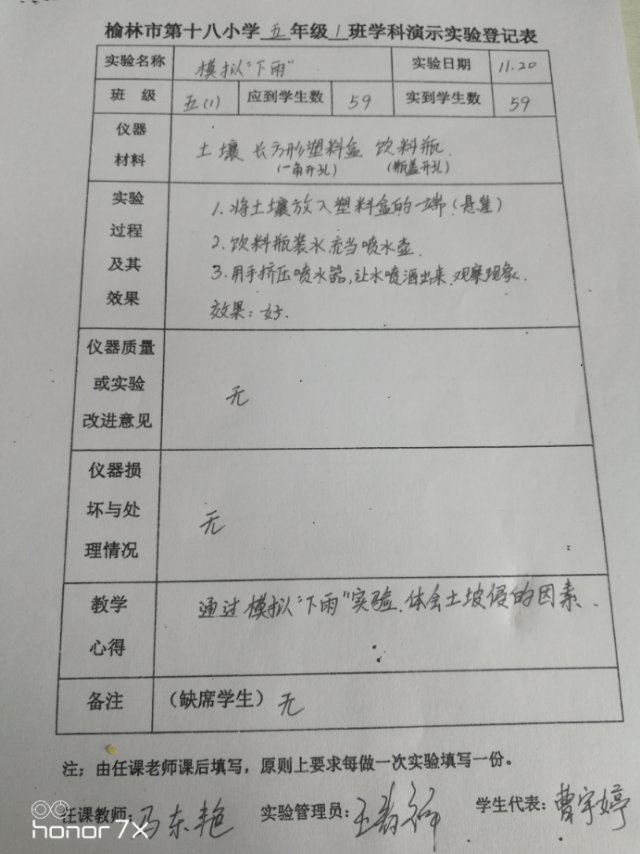 榆林市第十八小学五年级1班学科演示实验登记表
实验名称 模拟“下雨” 实验日期 11.20
班 级 五(1) 应到学生数 59 实到学生数 59
仪器
材料
土壤 长方形塑料盒 饮料瓶.
(一角开孔) (瓶盖开孔)
实验
过程
及其
效果
1.将土壤放入塑料盒的一端
2.饮料瓶装水充当喷水壶.
3.用手挤压喷水器,让水喷洒出来,观察现象.
效果:好.
仪器质量
或实验
改进意见
无
仪器损
坏与处
理情况
无
教学
心得
通过模拟“下雨”实验,体会土坡侵的因素.
备注 (缺席学生) 无
注:由任课老师课后填写,原则上要求每做一次实验填写一份。
任课教师:马东艳 实验管理员:王 学生代表:曹宇婷
honor 7X